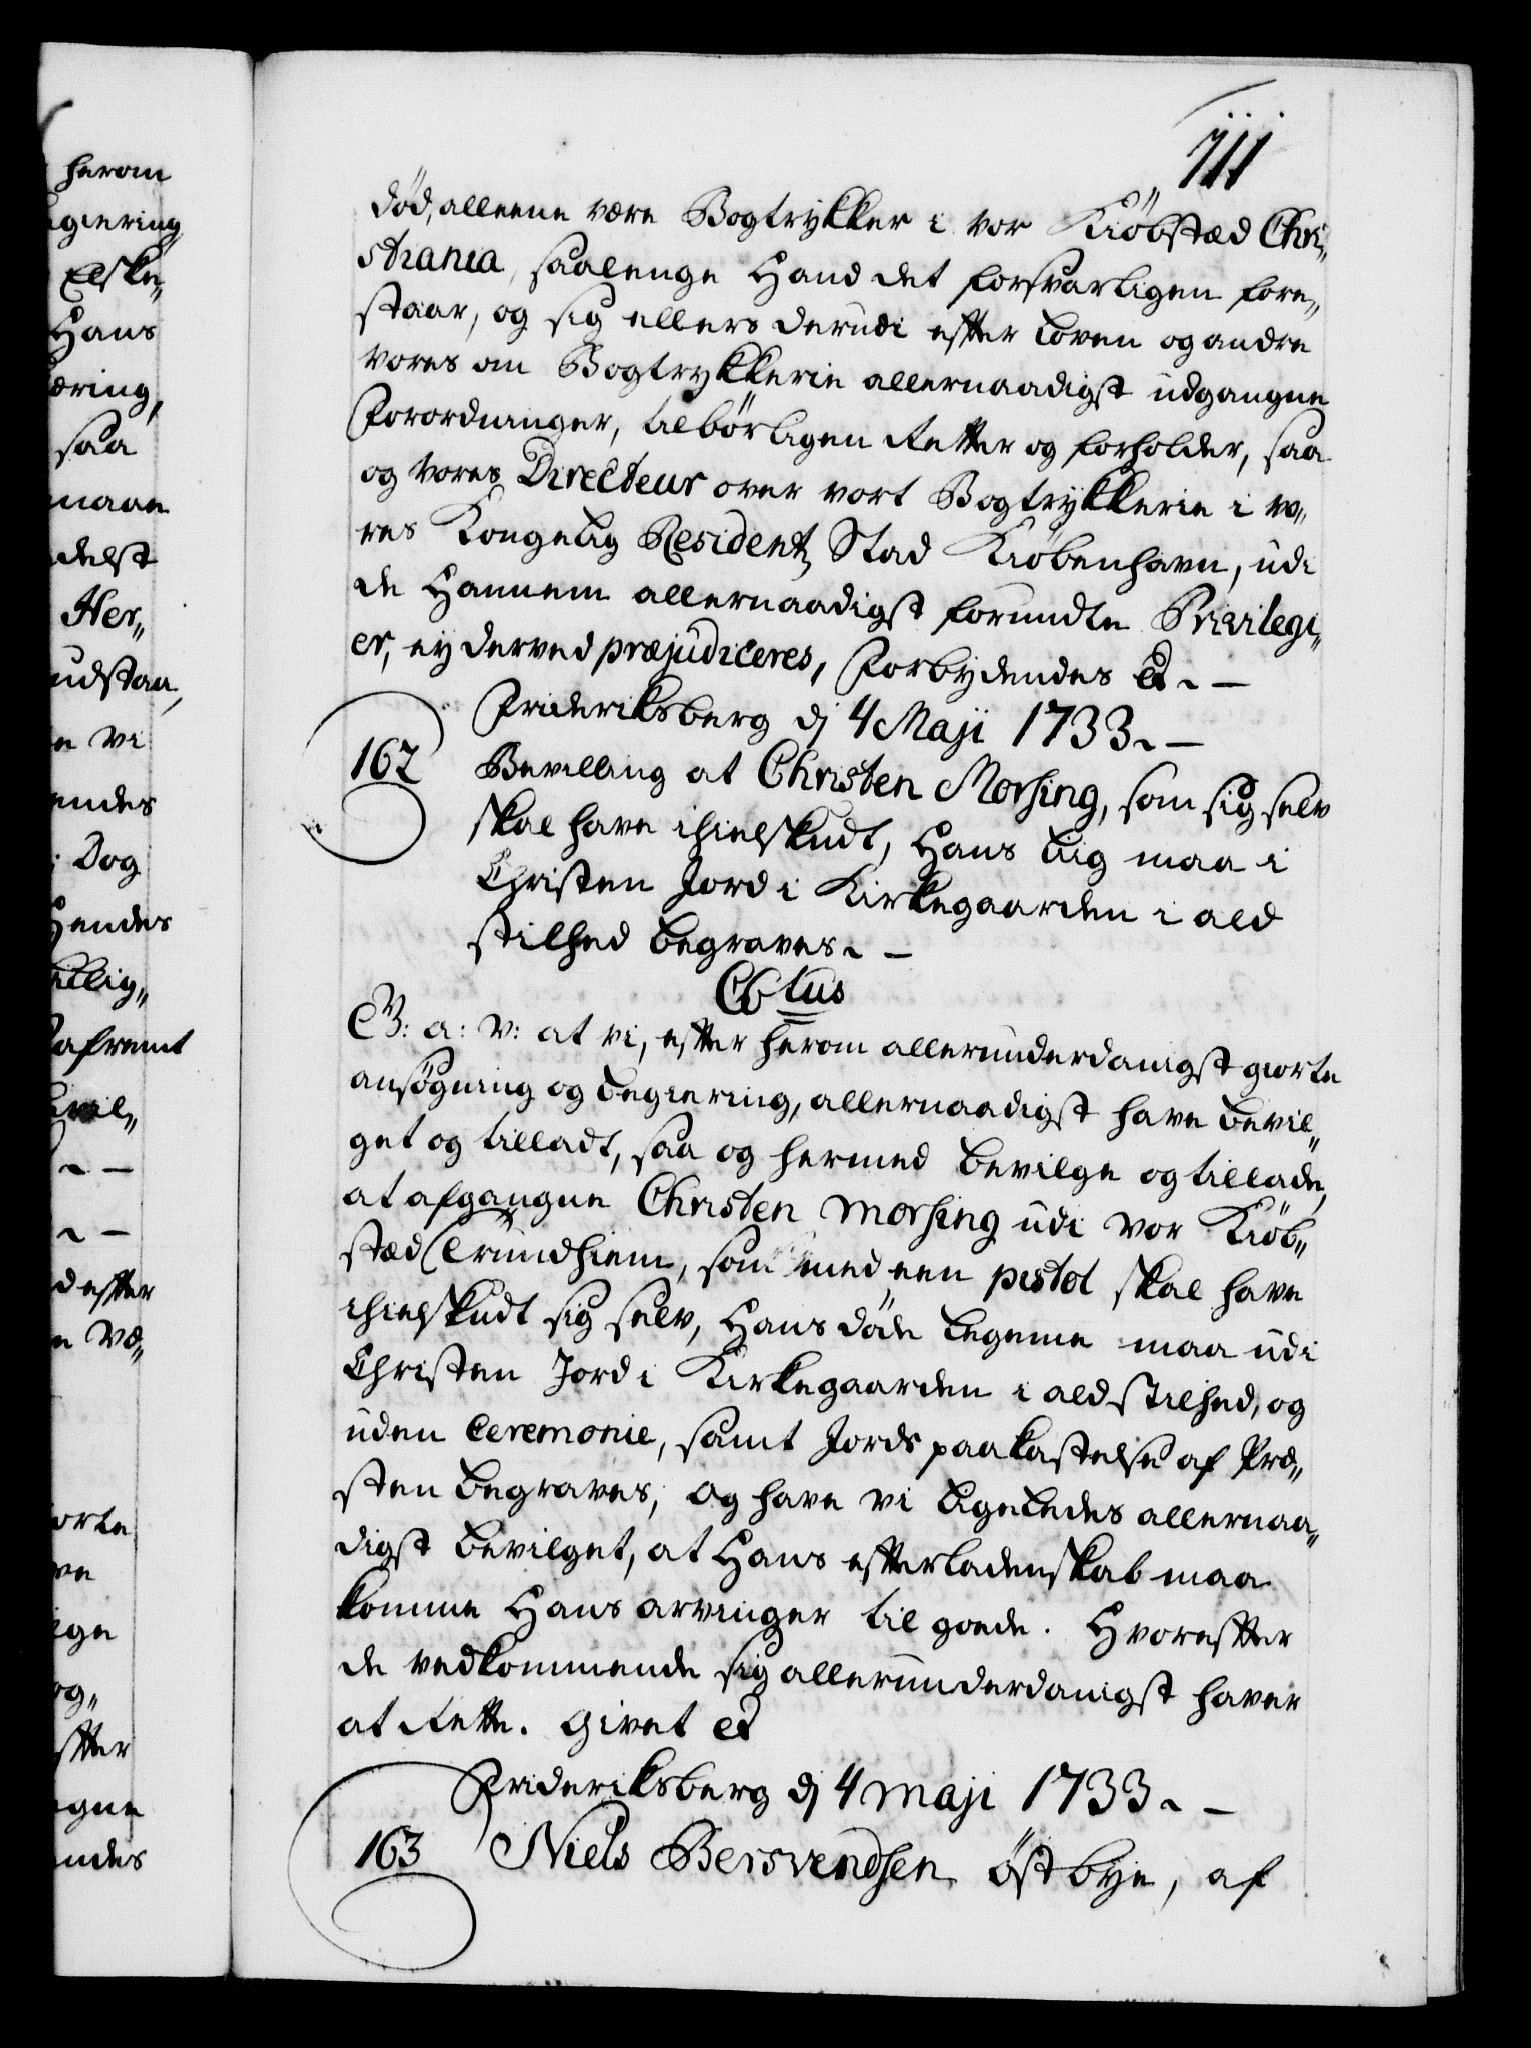 111
død, alleene være Bogtrÿkker i vor Kiöbstæd Chri„
stiania, saalenge Hand det forsvarligen fore„
staar, og sig ellers derudi efter Loven og andre
vores om Bogtrÿkkerie allernaadigst udgangne
Forordninger, tilbörligen Retter og forholder, saa
og vores Directeur over vort Bogtrÿkkerie i vo„
res Kongelig Residentz Stad Kiöbenhavn, udi
de Hannem allernaadigst forundte Privilegi„
er, eÿ derved præjudiceres, Forbÿdendes &. –
Frideriksberg dj 4 Maji 1733. –
162 Bevilling at Christen Morsing, som sig selv
skal have ihielskudt, Hans Liig maa i
Christen Jord i Kirkegaarden i ald
stilhed begraves. –
C6tus
G: a: V: at vi, efter herom allerunderdanigst giorte
ansøgning og begiering, allernaadigst have bevil„
get og tilladt, saa og hermed bevilge og tillade,
at afgangne Christen Morsing udi vor Kiöb„
stæd Trundhiem, som med een pistol skal have
ihielskudt sig selv, Hans döde Legeme maa udi
Christen Jord i Kirkegaarden i ald stilhed, og
uden Ceremonie, samt Jords paakastelse af Præ„
sten begraves, og have vi ligeledes allernaa„
digst bevilget, at Hans efterladenskab maa
komme Hans arvinger til goede. Hvorefter
de vedkommende sig allerunderdanigst haver
at Rette. Givet &
Frideriksberg dj 4 maji 1733. –
163 Niels Bersvendsen Östbye, af
herom
giering
Elske„
Hans
æring,
saa
maae
delst
Her„
udstaa,
e vi
endes
Dog
Hendes
illig„
afremt
– –
– –
defter
e Væ„
orte
ve
ige
og„
fter
gne
endes